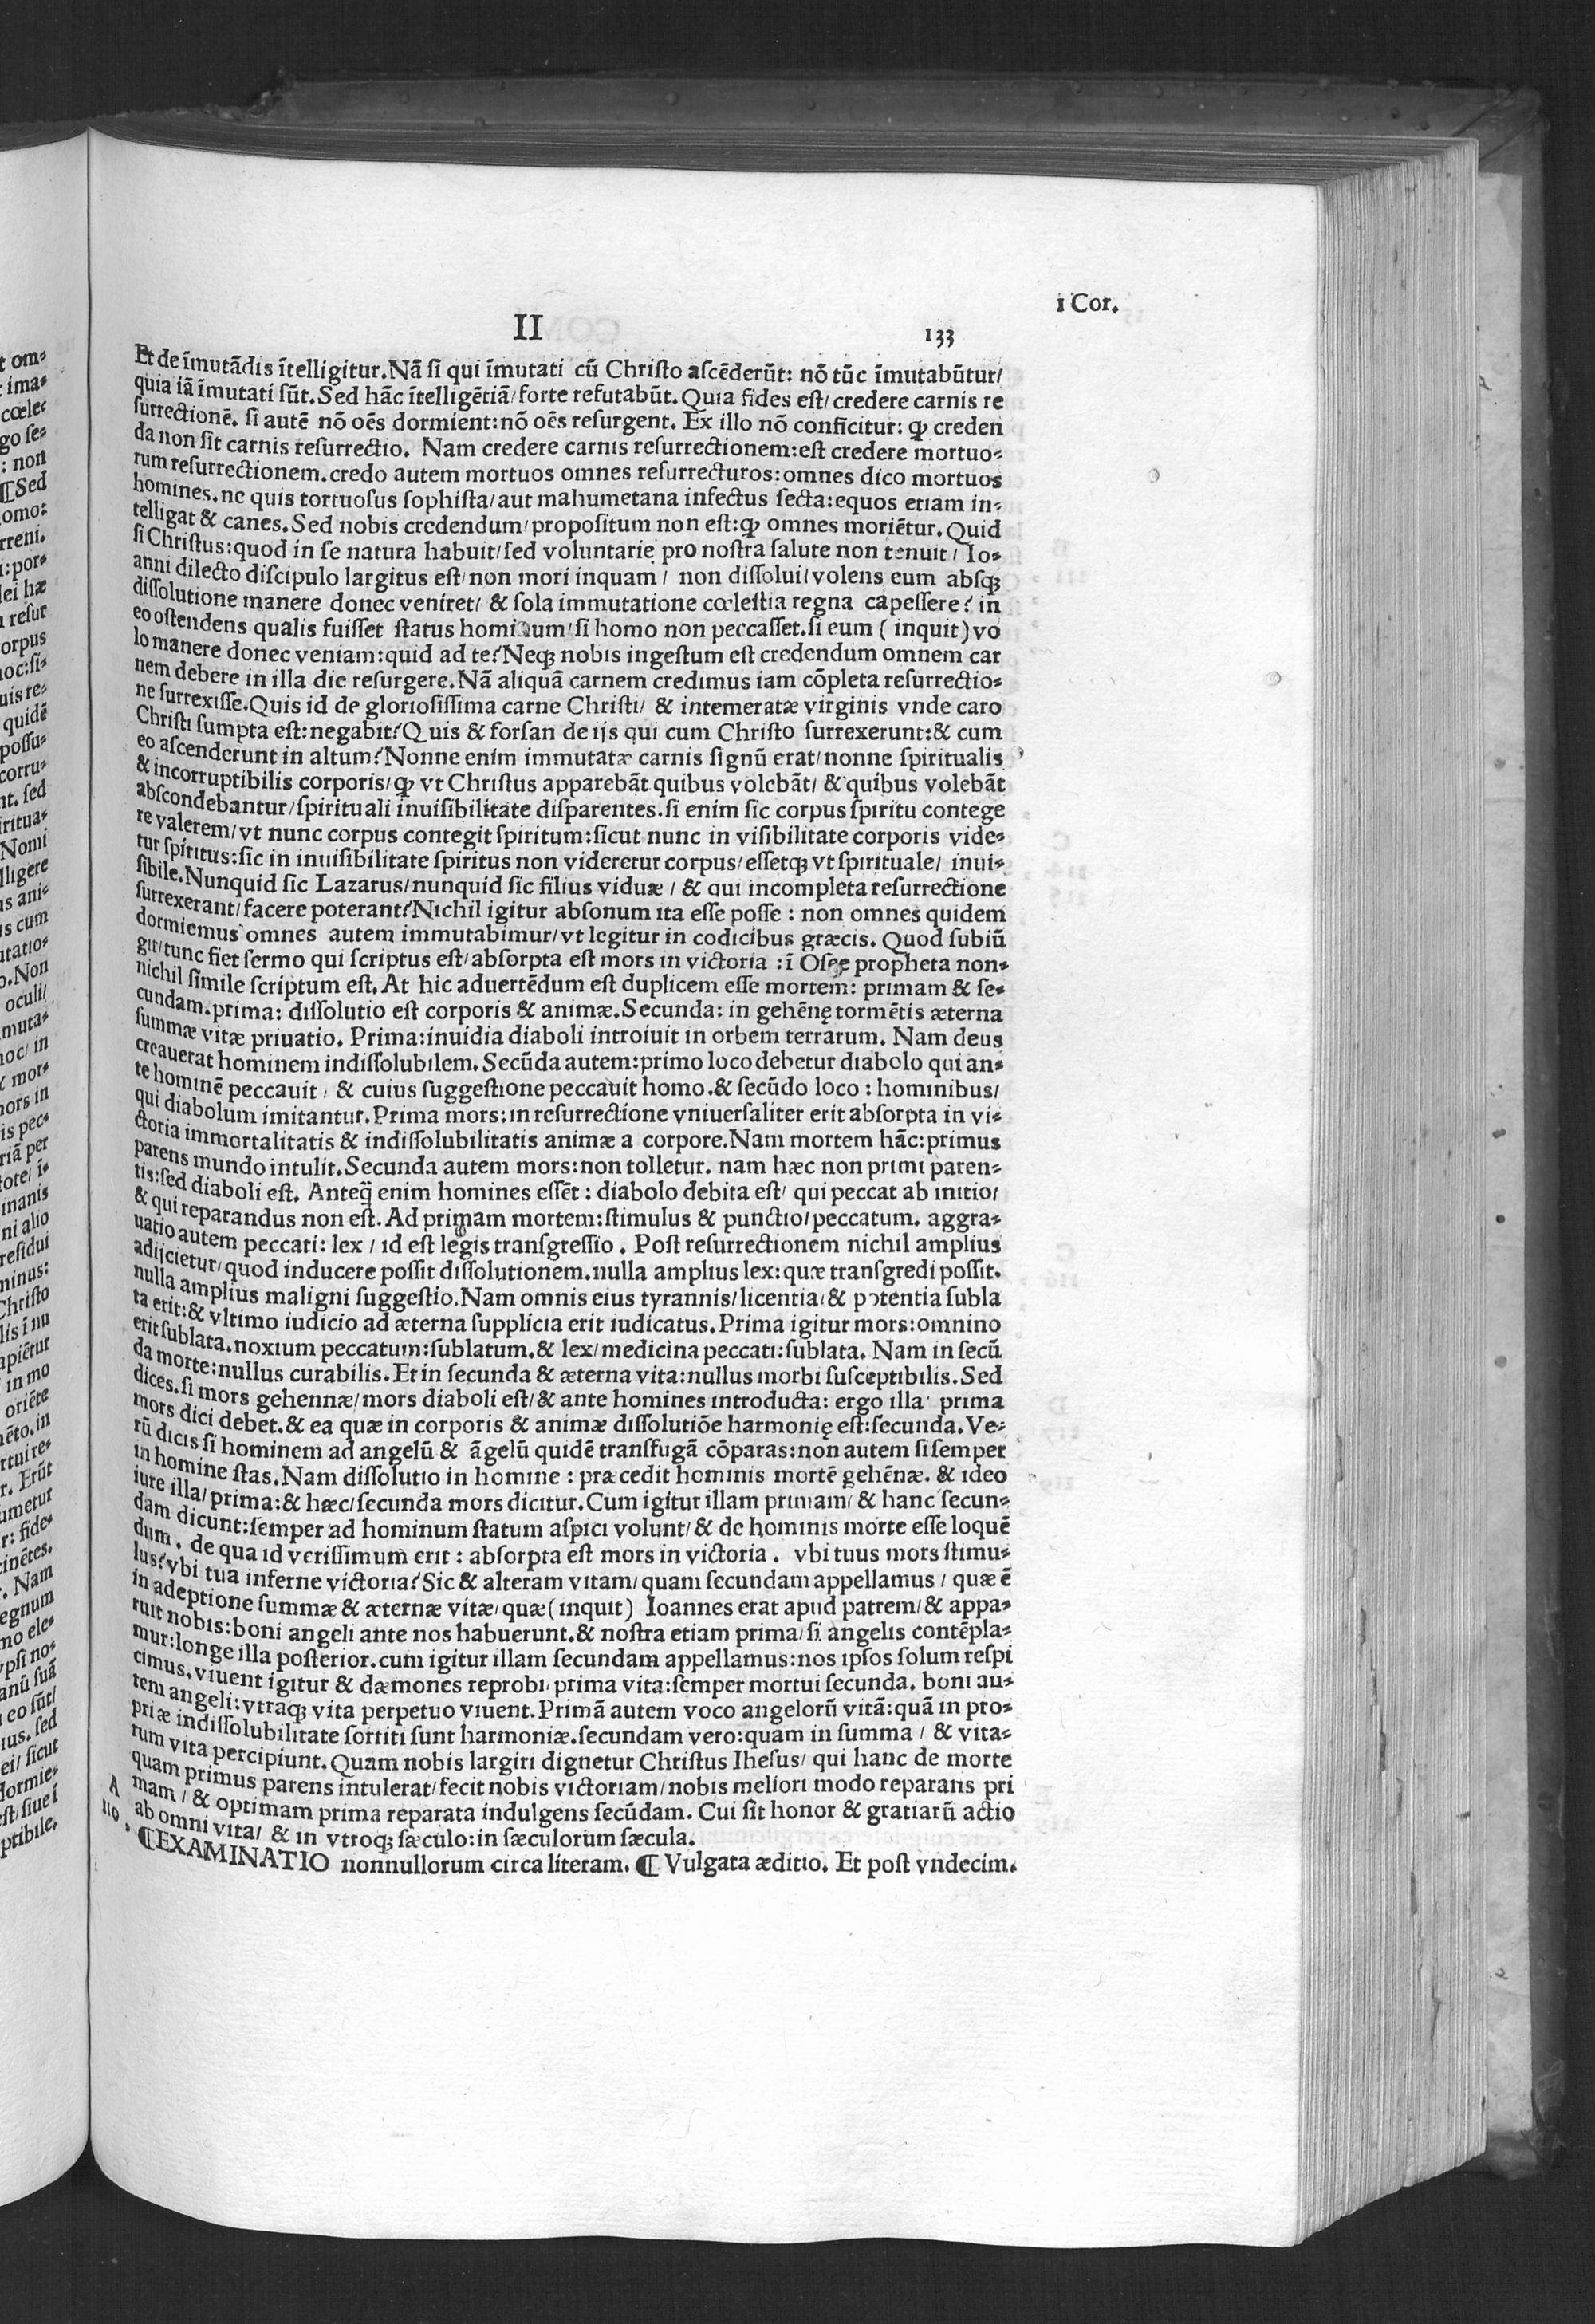 i Cor.
II
133
Et de īmutādis ītelligitur. Nā si qui īmutati cū Christo ascēderūt: nō tūc īmutabūtur/
quia iā īmutati sūt. Sed hāc ītelligētiā/ forte refutabūt. Quia fides est/ credere carnis re
surrectionē. si autē nō oēs dormient: nō oēs resurgent. Ex illo nō conficitur: ꝙ creden
da non sit carnis resurrectio. Nam credere carnis resurrectionem: est credere mortuo-
rum resurrectionem. credo autem mortuos omnes resurrecturos: omnes dico mortuos
homines. ne quis tortuosus sophista/ aut mahumetana infectus secta: equos etiam in-
telligat & canes. Sed nobis credendum/ propositum non est: ꝙ omnes moriētur. Quid
si Christus: quod in se natura habuit/ sed voluntarie pro nostra salute non tenuit/ Io-
anni dilecto discipulo largitus est/ non mori inquam/ non dissolui/ volens eum absqꝫ
dissolutione manere donec veniret/ & sola immutatione cœlestia regna capessere? in
eo ostendens qualis fuisset status hominum/ si homo non peccasset. si eum (inquit) vo
lo manere donec veniam: quid ad te? Neqꝫ nobis ingestum est credendum omnem car
nem debere in illa die resurgere. Nā aliquā carnem credimus iam cōpleta resurrectio-
ne surrexisse. Quis id de gloriosissima carne Christi/ & intemeratæ virginis vnde caro
Christi sumpta est: negabit? Quis & forsan de ijs qui cum Christo surrexerunt: & cum
eo ascenderunt in altum? Nonne enim immutatæ carnis signū erat/ nonne spiritualis
& incorruptibilis corporis/ ꝙ vt Christus apparebāt quibus volebāt/ & quibus volebāt
abscondebantur/ spirituali inuisibilitate disparentes. si enim sic corpus spiritu contege
re valerem/ vt nunc corpus contegit spiritum: sicut nunc in visibilitate corporis vide-
tur spiritus: sic in inuisibilitate spiritus non videretur corpus/ essetqꝫ vt spirituale/ inui-
sibile. Nunquid sic Lazarus/ nunquid sic filius viduæ/ & qui incompleta resurrectione
surrexerant/ facere poterant? Nichil igitur absonum ita esse posse: non omnes quidem
dormiemus omnes autem immutabimur/ vt legitur in codicibus græcis. Quod subiū
git/ tunc fiet sermo qui scriptus est/ absorpta est mors in victoria: ī Osee propheta non-
nichil simile scriptum est. At hic aduertēdum est duplicem esse mortem: primam & se-
cundam. prima: dissolutio est corporis & animæ. Secunda: in gehēnę tormētis æterna
summæ vitæ priuatio. Prima: inuidia diaboli introiuit in orbem terrarum. Nam deus
creauerat hominem indissolubilem. Secūda autem: primo loco debetur diabolo qui an-
te hominē peccauit/ & cuius suggestione peccauit homo. & secūdo loco: hominibus/
qui diabolum imitantur. Prima mors: in resurrectione vniuersaliter erit absorpta in vi-
ctoria immortalitatis & indissolubilitatis animæ a corpore. Nam mortem hāc: primus
parens mundo intulit. Secunda autem mors: non tolletur. nam hæc non primi paren-
tis: sed diaboli est. Anteq̄ enim homines essēt: diabolo debita est/ qui peccat ab initio/
& qui reparandus non est. Ad primam mortem: stimulus & punctio/ peccatum. aggra-
uatio autem peccati: lex/ id est legis transgressio. Post resurrectionem nichil amplius
adijcietur/ quod inducere possit dissolutionem. nulla amplius lex: quæ transgredi possit.
nulla amplius maligni suggestio. Nam omnis eius tyrannis/ licentia/ & potentia subla
ta erit: & vltimo iudicio ad æterna supplicia erit iudicatus. Prima igitur mors: omnino
erit sublata. noxium peccatum: sublatum. & lex/ medicina peccati: sublata. Nam in secū
da morte: nullus curabilis. Et in secunda & æterna vita: nullus morbi susceptibilis. Sed
dices. si mors gehennæ/ mors diaboli est/ & ante homines introducta: ergo illa prima
mors dici debet. & ea quæ in corporis & animæ dissolutiōe harmonię est: secunda. Ve-
rū dicis si hominem ad angelū & āgelū quidē transfugā cōparas: non autem si semper
in homine stas. Nam dissolutio in homine: præcedit hominis mortē gehēnæ. & ideo
iure illa/ prima: & hæc/ secunda mors dicitur. Cum igitur illam primam/ & hanc secun-
dam dicunt: semper ad hominum statum aspici volunt/ & de hominis morte esse loquē
dum. de qua id verissimum erit: absorpta est mors in victoria. vbi tuus mors stimu-
lus? vbi tua inferne victoria? Sic & alteram vitam/ quam secundam appellamus/ quæ ē
in adeptione summæ & æternæ vitæ/ quæ (inquit) Ioannes erat apud patrem/ & appa-
ruit nobis: boni angeli ante nos habuerunt. & nostra etiam prima/ si angelis contēpla-
mur: longe illa posterior. cum igitur illam secundam appellamus: nos ipsos solum respi
cimus. viuent igitur & dæmones reprobi/ prima vita: semper mortui secunda. boni au-
tem angeli: vtraqꝫ vita perpetuo viuent. Primā autem voco angelorū vitā: quā in pro-
priæ indissolubilitate sortiti sunt harmoniæ. secundam vero: quam in summa/ & vita-
rum vita percipiunt. Quam nobis largiri dignetur Christus Ihesus/ qui hanc de morte
quam primus parens intulerat/ fecit nobis victoriam/ nobis meliori modo reparans pri
A mam/ & optimam prima reparata indulgens secūdam. Cui sit honor & gratiarū actio
110. ab omni vita/ & in vtroqꝫ sæculo: in sæculorum sæcula.
¶EXAMINATIO nonnullorum circa literam. ¶ Vulgata æditio. Et post vndecim.